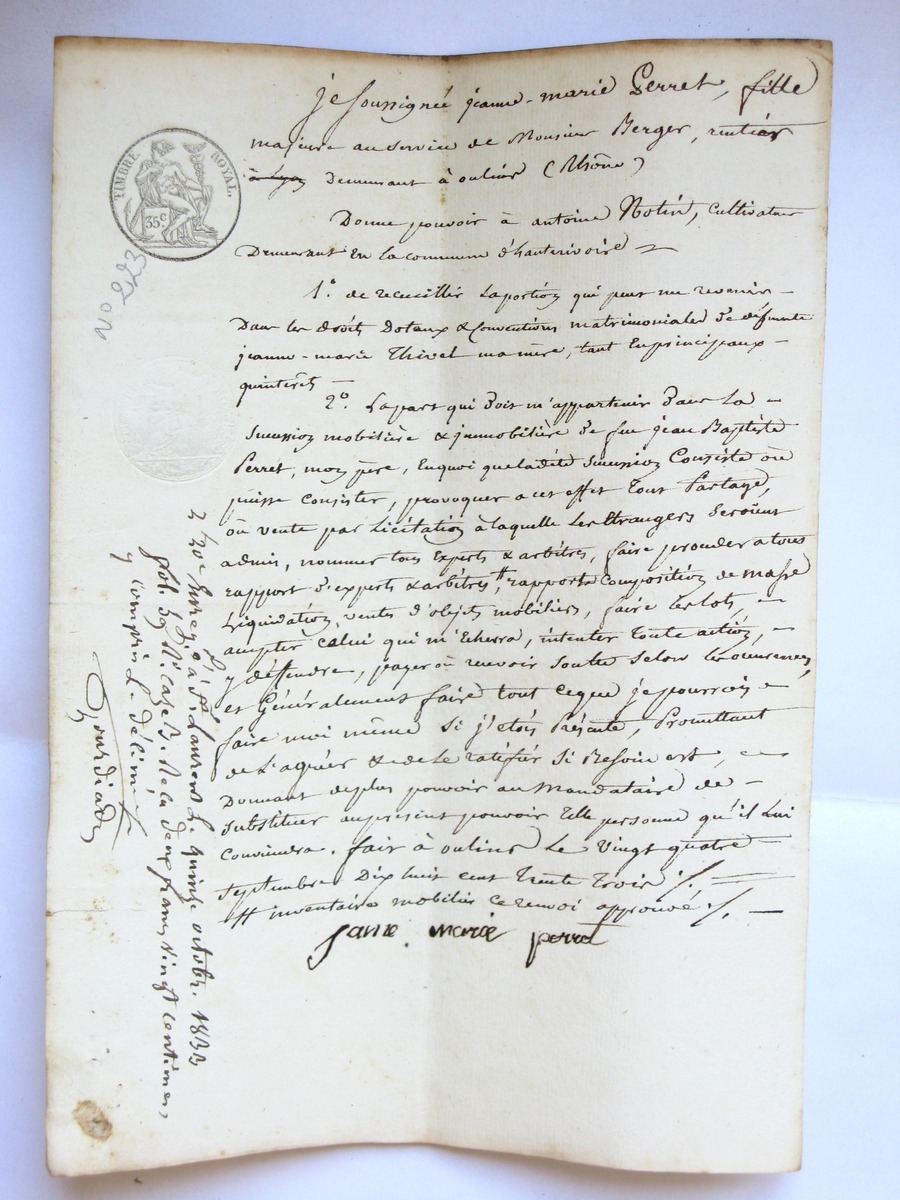 je soussignée jeanne-marie Perret, fille
majeure au service de Monsieur Berger, rentier
à Lyon Demeurant à oulins (Rhône)
Donne pouvoir à antoine Notin, Cultivateur
Demeurant En La commune d'hauterivoire
1.° de recueillir La portion qui peut me revenir
Dans les droits Dotaux & Conventions matrimoniales De défunte
jeanne-marie Thivel ma mère, tant En principaux
qu'interêts
2.° La part qui Doit m'appartenir Dans La
Succession mobilière & immobilière De feu jean Baptiste
Perret, mon père, En quoi que ladite Succession Consiste ou
puisse Consister, provoquer a cet effet Tout Partage,
ou vente par Licitation à laquelle Les Etrangers Seroient
admis, nommer tous Experts & arbitres, faire proceder a tous
rapport D'experts & arbitres, # rapports Composition de masse
Liquidation, ventes d'objets mobiliers, faire Les lots,
accepter Celui qui m'Echerra, intenter Toute action,
y déffendre, payer ou recevoir Soulte Selon Les occurences,
et Généralement faire tout Ceque je pourrois
faire moi même Si j'etois Présente, Promettant
de L'agréer & de Le ratifier Si Besoin est,
Donnant de plus pouvoir au Mandataire de
Substituer au present pouvoir Telle personne qu'il Lui
Conviendra. fait à oulins Le Vingt quatre
Septembre Dix huit cent Trente Trois ./.
# inventaire mobilier Ce renvoi approuvé ./.
janne marie perret
TIMBRE ROYAL.
35 c.
N° 223
Enreg. à St Laurent L. quinze octobr. 1833
fol. 39 R. case 8. Recu deux francs vingt centimes
y compris L. décime